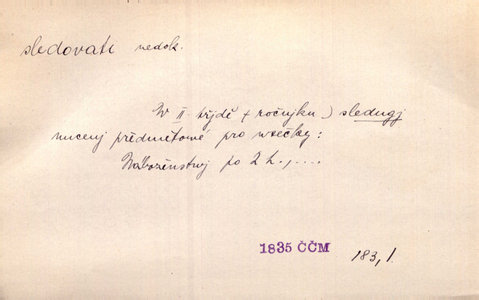 sledovati nedok.
W II. třjdě (ročnjku) sledugj
nuceny předmětowé pro wsečky:
Náboženstwj po 2 h., ....
1835 ČČM
183,1